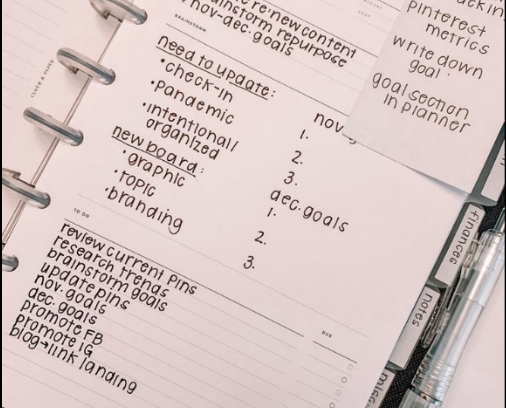 re:new content
brainstorm repurpose
nov-dec. goals
BRAINSTORM
need to update:
•check-in
•pandemic
•intentionall
organized
new board:
•graphic
•topic
•branding
nov.
1.
2.
3.
dec. goals
1.
2.
3.
pinterest
metrics
write down
goal
goal section
in planner
TO DO
DUE
review current pins
research trends
brainstorm goals
update pins
nov. goals
dec. goals
promote FB
promote IG
blog→link landing
finances
notes